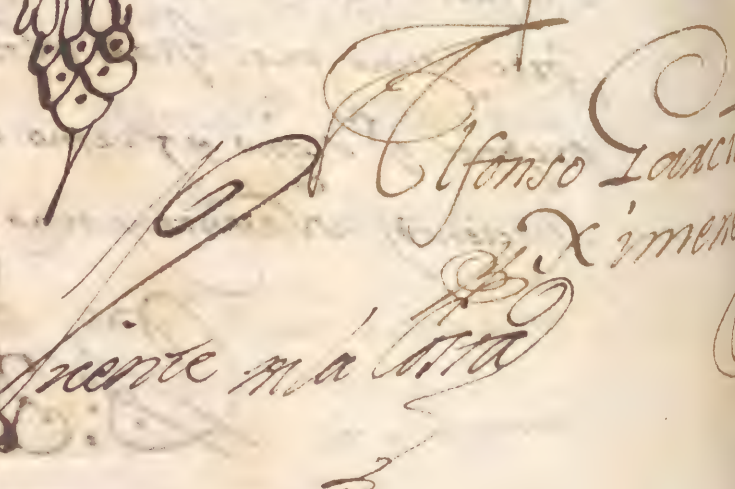 Alfonso Garci
Ximene
Vicente mª